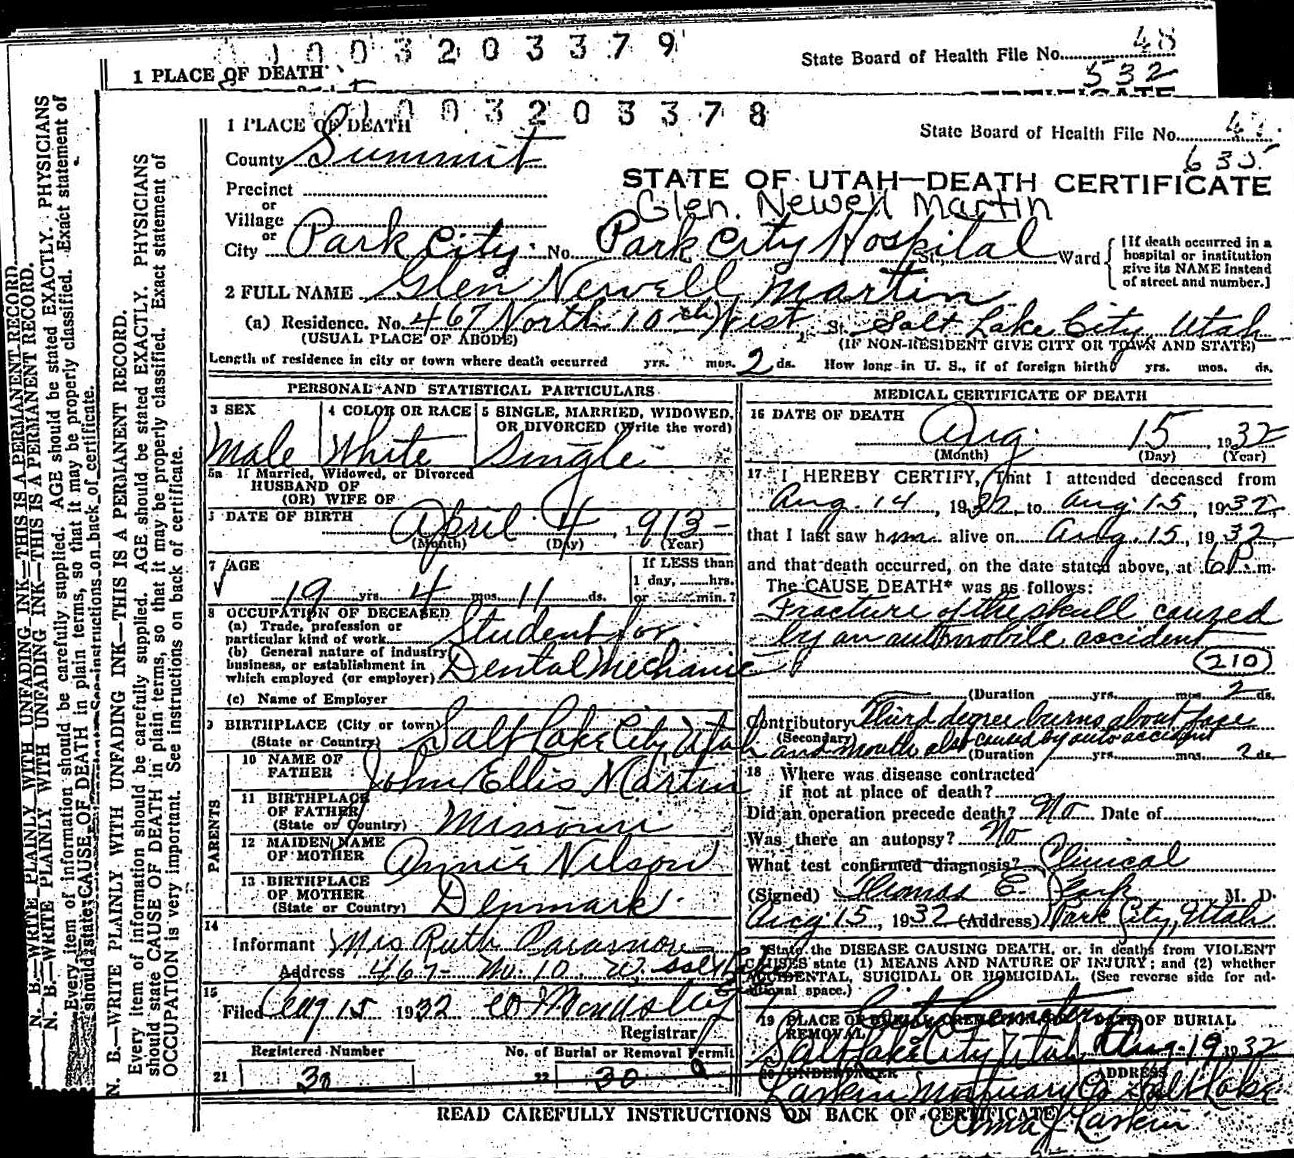 0 1 0 0 3 2 0 3 3 7 9
State Board of Health File No. 48
1 PLACE OF DEATH
532
0 1 0 0 3 2 0 3 3 7 8
1 PLACE OF DEATH
State Board of Health File No.
635
County Summit
STATE OF UTAH—DEATH CERTIFICATE
Precinct
Glen. Newell Martin
or
Village
or
City Park City. No. Park City Hospital St., Ward
[If death occurred in a
hospital or institution
give its NAME instead
of street and number.]
2 FULL NAME Glen Newell Martin
(a) Residence. No. 467 North 10th West St. Salt Lake City Utah
(USUAL PLACE OF ABODE) (IF NON-RESIDENT GIVE CITY OR TOWN AND STATE)
Length of residence in city or town where death occurred yrs. mos. 2 ds. How long in U. S., if of foreign birth? yrs. mos. ds.
PERSONAL AND STATISTICAL PARTICULARS
3 SEX 4 COLOR OR RACE 5 SINGLE, MARRIED, WIDOWED,
OR DIVORCED (Write the word)
Male White Single
5a If Married, Widowed, or Divorced
HUSBAND OF
(OR) WIFE OF
DATE OF BIRTH April 4, 1913
(Month) (Day) (Year)
7 AGE If LESS than
1 day, hrs.
19 yrs. 4 mos. 11 ds. or min.?
8 OCCUPATION OF DECEASED
(a) Trade, profession or
particular kind of work Student for
(b) General nature of industry
business, or establishment in
which employed (or employer) Dental Mechanic
(c) Name of Employer
9 BIRTHPLACE (City or town) Salt Lake City Utah
(State or Country)
PARENTS
10 NAME OF
FATHER John Ellis Martin
11 BIRTHPLACE
OF FATHER
(State or Country) Missouri
12 MAIDEN NAME
OF MOTHER Annie Nilson
13 BIRTHPLACE
OF MOTHER
(State or Country) Denmark.
14
Informant Mrs Ruth
Address 467- No. 10. W. Salt Lake
15
Filed Aug 15 1932
Registrar
Registered Number No. of Burial or Removal Permit
21 30 22 30
MEDICAL CERTIFICATE OF DEATH
16 DATE OF DEATH Aug. 15, 1932
(Month) (Day) (Year)
17 I HEREBY CERTIFY, That I attended deceased from
Aug. 14, 1932, to Aug. 15, 1932,
that I last saw him alive on Aug. 15, 1932,
and that death occurred, on the date stated above, at 6 P. m.
The CAUSE DEATH* was as follows:
Fracture of the skull caused
by an automobile accident
210
(Duration yrs. mos. 2 ds.
Contributory Third degree burns about face
(Secondary) and mouth also caused by auto accident
(Duration yrs. mos. 2 ds.
18 Where was disease contracted
if not at place of death?
Did an operation precede death? No Date of
Was there an autopsy? No
What test confirmed diagnosis? Clinical
(Signed) Thomas E. M. D.
Aug 15, 1932 (Address) Park City, Utah
*State the DISEASE CAUSING DEATH, or, in deaths from VIOLENT
CAUSES state (1) MEANS AND NATURE OF INJURY; and (2) whether
ACCIDENTAL, SUICIDAL OR HOMICIDAL. (See reverse side for ad-
ditional space.)
City Cemetery
19 PLACE OF BURIAL, CREMATION OR DATE OF BURIAL
REMOVAL
Salt Lake City Utah Aug. 19 1932
20 UNDERTAKER ADDRESS
Larkin Mortuary Co Salt Lake
Alma J Larkin
READ CAREFULLY INSTRUCTIONS ON BACK OF CERTIFICATE
N. B.—WRITE PLAINLY WITH UNFADING INK—THIS IS A PERMANENT RECORD.
Every item of information should be carefully supplied. AGE should be stated EXACTLY. PHYSICIANS
should state CAUSE OF DEATH in plain terms, so that it may be properly classified. Exact statement of
OCCUPATION is very important. See instructions on back of certificate.
N. B.—WRITE PLAINLY WITH UNFADING INK—THIS IS A PERMANENT RECORD.
N. B.—WRITE PLAINLY WITH UNFADING INK—THIS IS A PERMANENT RECORD.
Every item of information should be carefully supplied. AGE should be stated EXACTLY. PHYSICIANS
should state CAUSE OF DEATH in plain terms, so that it may be properly classified. Exact statement of
See instructions on back of certificate.